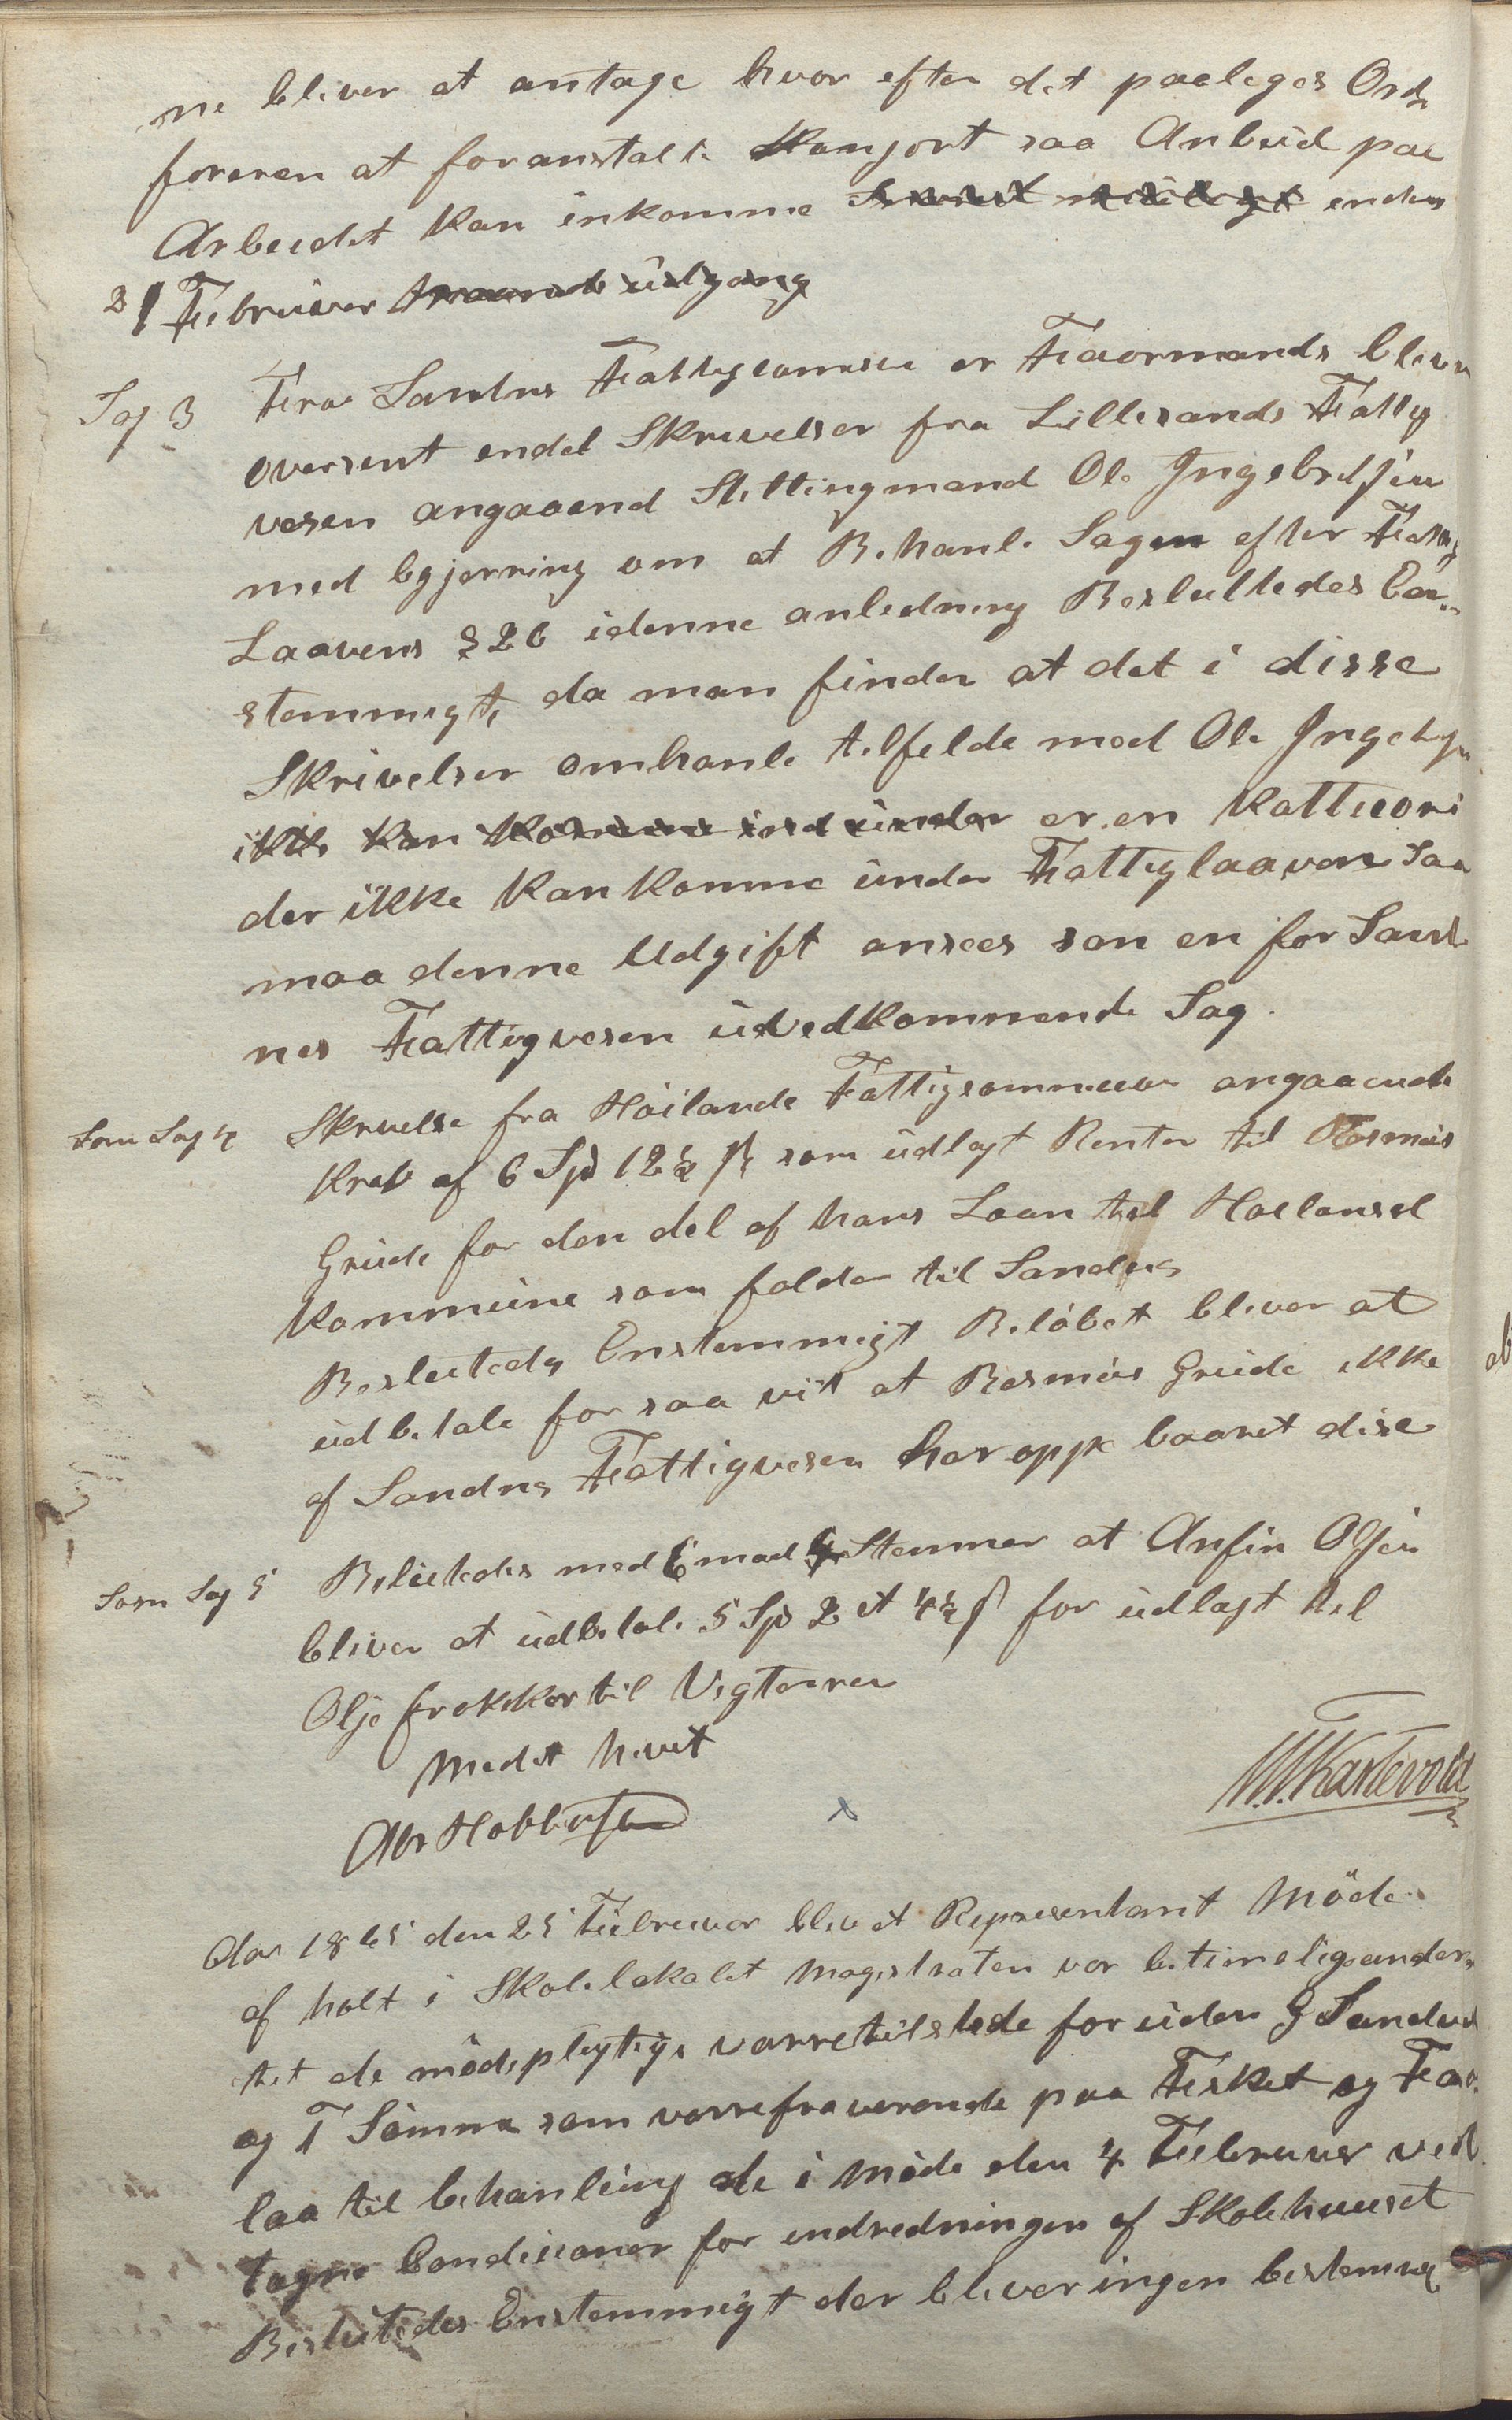 ne bliver at antage hvor efter det paaleges Ord
foreren at foranstalte Kangjort saa Anbud paa
Arbeidet Kan inkomme inden
21 Februar Maaneds udgang
Sag 3 Fra Sandnes Fattigcomision er Formands bleven
oversent endel Skrivelser fra Lillesands Fattig
vesen angaaend Stettingmand Ole Ingebretsen
med begjerring om at Behanle Sagen efter Fattig
Laavens § 26 idenne anledning Besluttedes Een
stemmigt, da man finder at det i disse
Skrivelser omhanle tilfelde med Ole Ingebrets
ikke kan komme ind under er en Kattegori
der ikke Kan Komme under Fattiglaaven Saa
maa denne Udgift ansees som en for Sand
nes Fattigvesen uvedkommende Sag.
Som Sag 4 Skrivelse fra Høilands Fattigcommision angaaende
Krav af 6 Spd 12½ β som udlagt Renter til Rasmus
Grude for den del af hans Laan til Høiland
Kommune som falder til Sandnes
Beslutedes Enstemmigt Beløbet bliver at
udbetale for saa vit at Rasmus Grude ikke
af Sandnes Fattigvesen har oppe baaret dise
Som Sag 5 Beslutedes med 6 mod 4 Stemmer at Anfin Olsen
bliver at udbetale 5 Spd 2 ort 4½ β for udlagt til
Olje frokker til Vegterne
Medet hevet
Abr Habbersta M. Kartevold
Aar 1865 den 25 Februar blev et Representant Møde
af holt i Skolelokalet Magistraten var betimelig under
tet de mødepligtige varre tilstede foruden G Sandved
og T Sømme som varre fraverende paa Fisket og For
laa til behanling de i Møde den 4 Februar ved
tagne Condisioner for indredningen af Skolehuuset
Beslutedes Enstemmigt der bliver ingen bestemmel